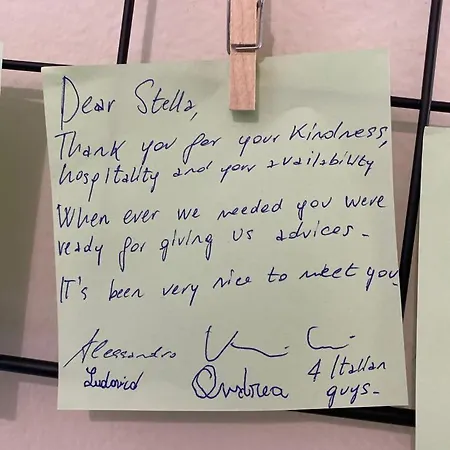 Dear Stella,
Thank you for your Kindness,
hospitality and your availability
When ever we needed you were
ready for giving us advices.
It's been very nice to meet you.
Alessandro
Ludovico
4 Italian
guys.